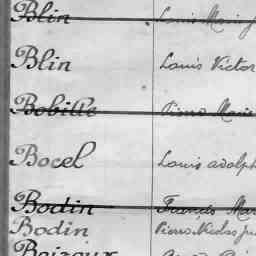 Blin Louis Marie
Blin Louis Victor
Bobille Pierre Marie
Bocel Louis adolph
Bodin Francis Mar
Bodin Pierre Nicolas
Boizoux